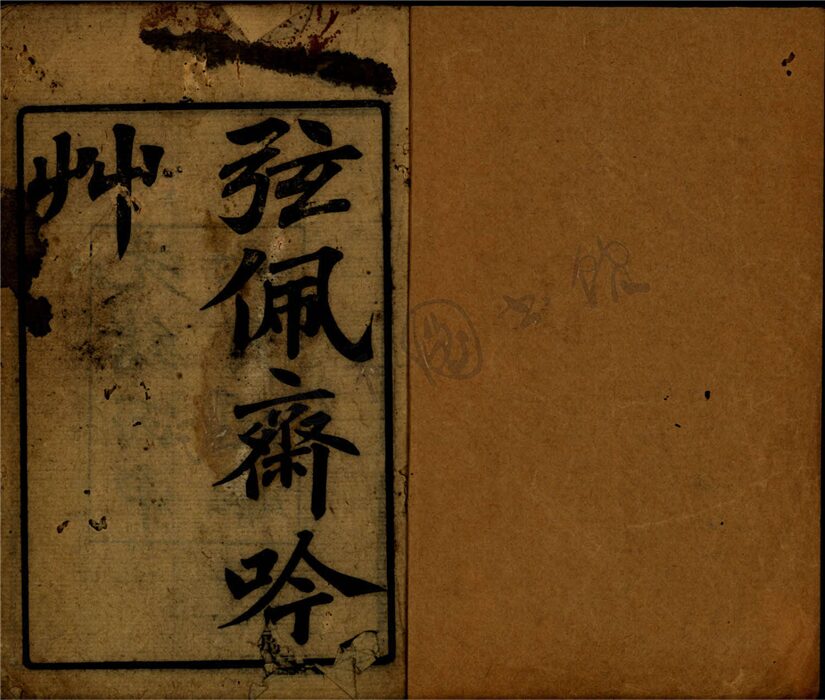 弦佩齋吟
艸